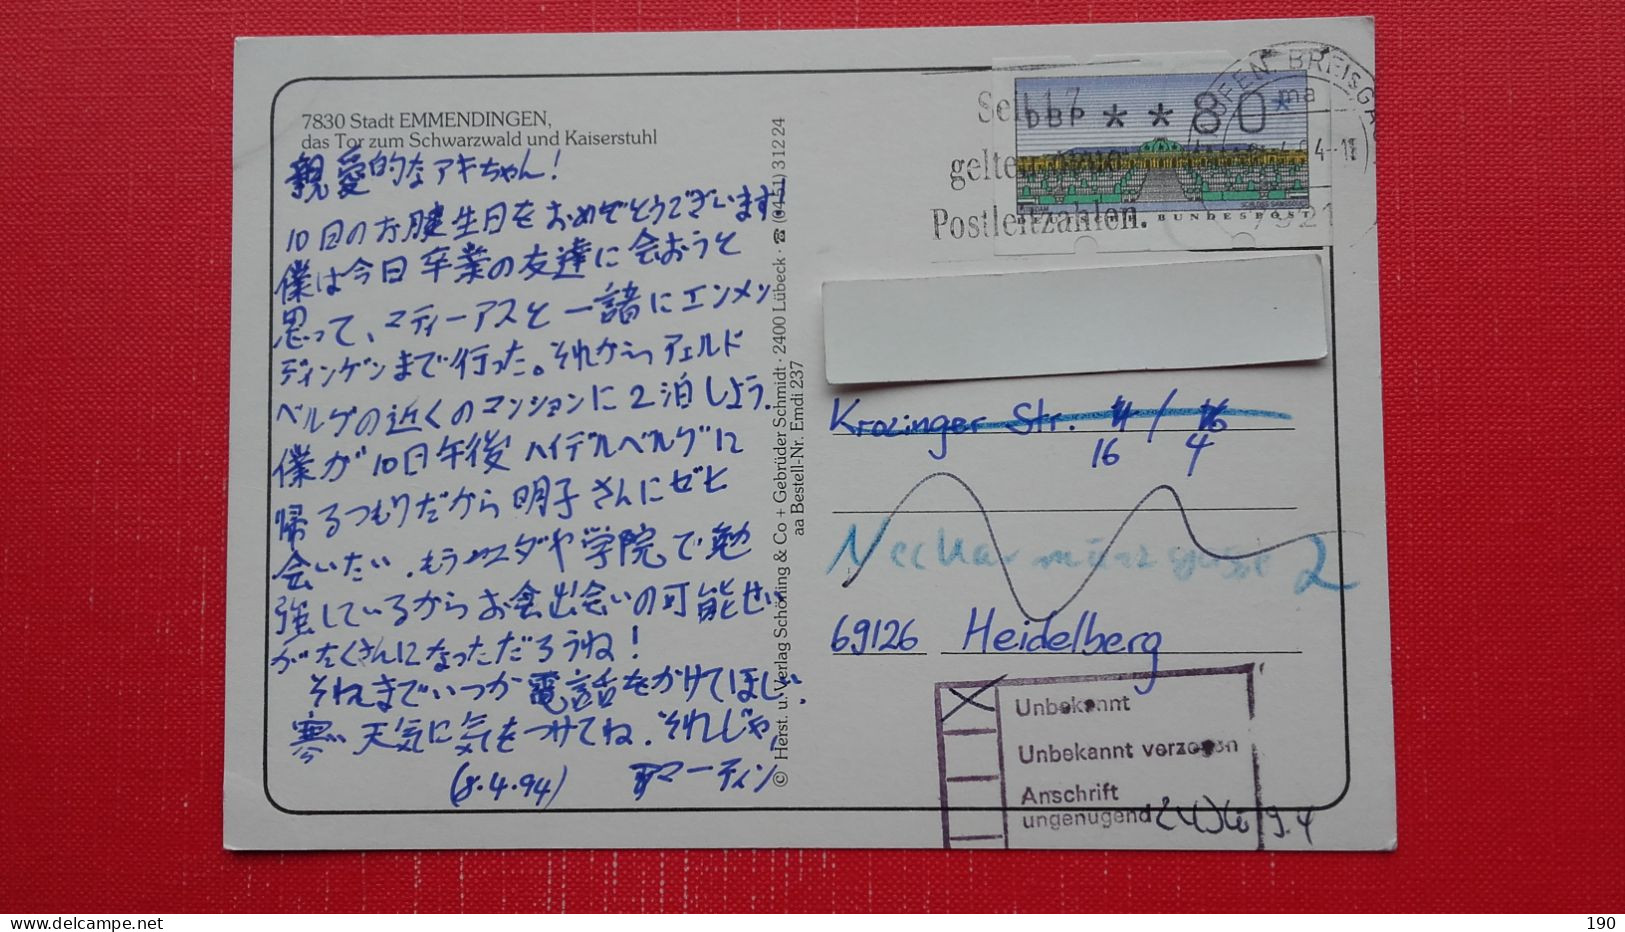 7830 Stadt EMMENDINGEN,
das Tor zum Schwarzwald und Kaiserstuhl
親愛的なアキちゃん!
10日のお誕生日をおめでとうございます!
僕は今日卒業の友達に会おうと
思って、マティーアスと一諸にエンメン
ディンゲンまで行った。それから フェルド
ベルグの近くのマンションに2泊しよう.
僕が10日午後ハイデルベルグに
帰るつもりだから明子さんにゼヒ
会いたい.もう ダヤ学院で勉
強しているからお会出会いの可能せい
がたくさんになっただろうね!
それまでいつか電話をかけてほしい.
寒い天気に気をつけてね.それじゃ,
(8.4.94) マーティン
© Herst. u. Verlag Schöning & Co + Gebrüder Schmidt · 2400 Lübeck · ☎ (04 51) 3 12 24
aa Bestell-Nr. Emdi 237
DBP **80*
gelten neue
Postleitzahlen.
DEUTSCHE BUNDESPOST
SCHLOSS SANSSOUCI
BREISGAU
Krozinger Str. 4 / 16
16 4
Neckarmünzgasse 2
69126 Heidelberg
Unbekannt
Unbekannt verzogen
Anschrift
ungenügend
9.4
190